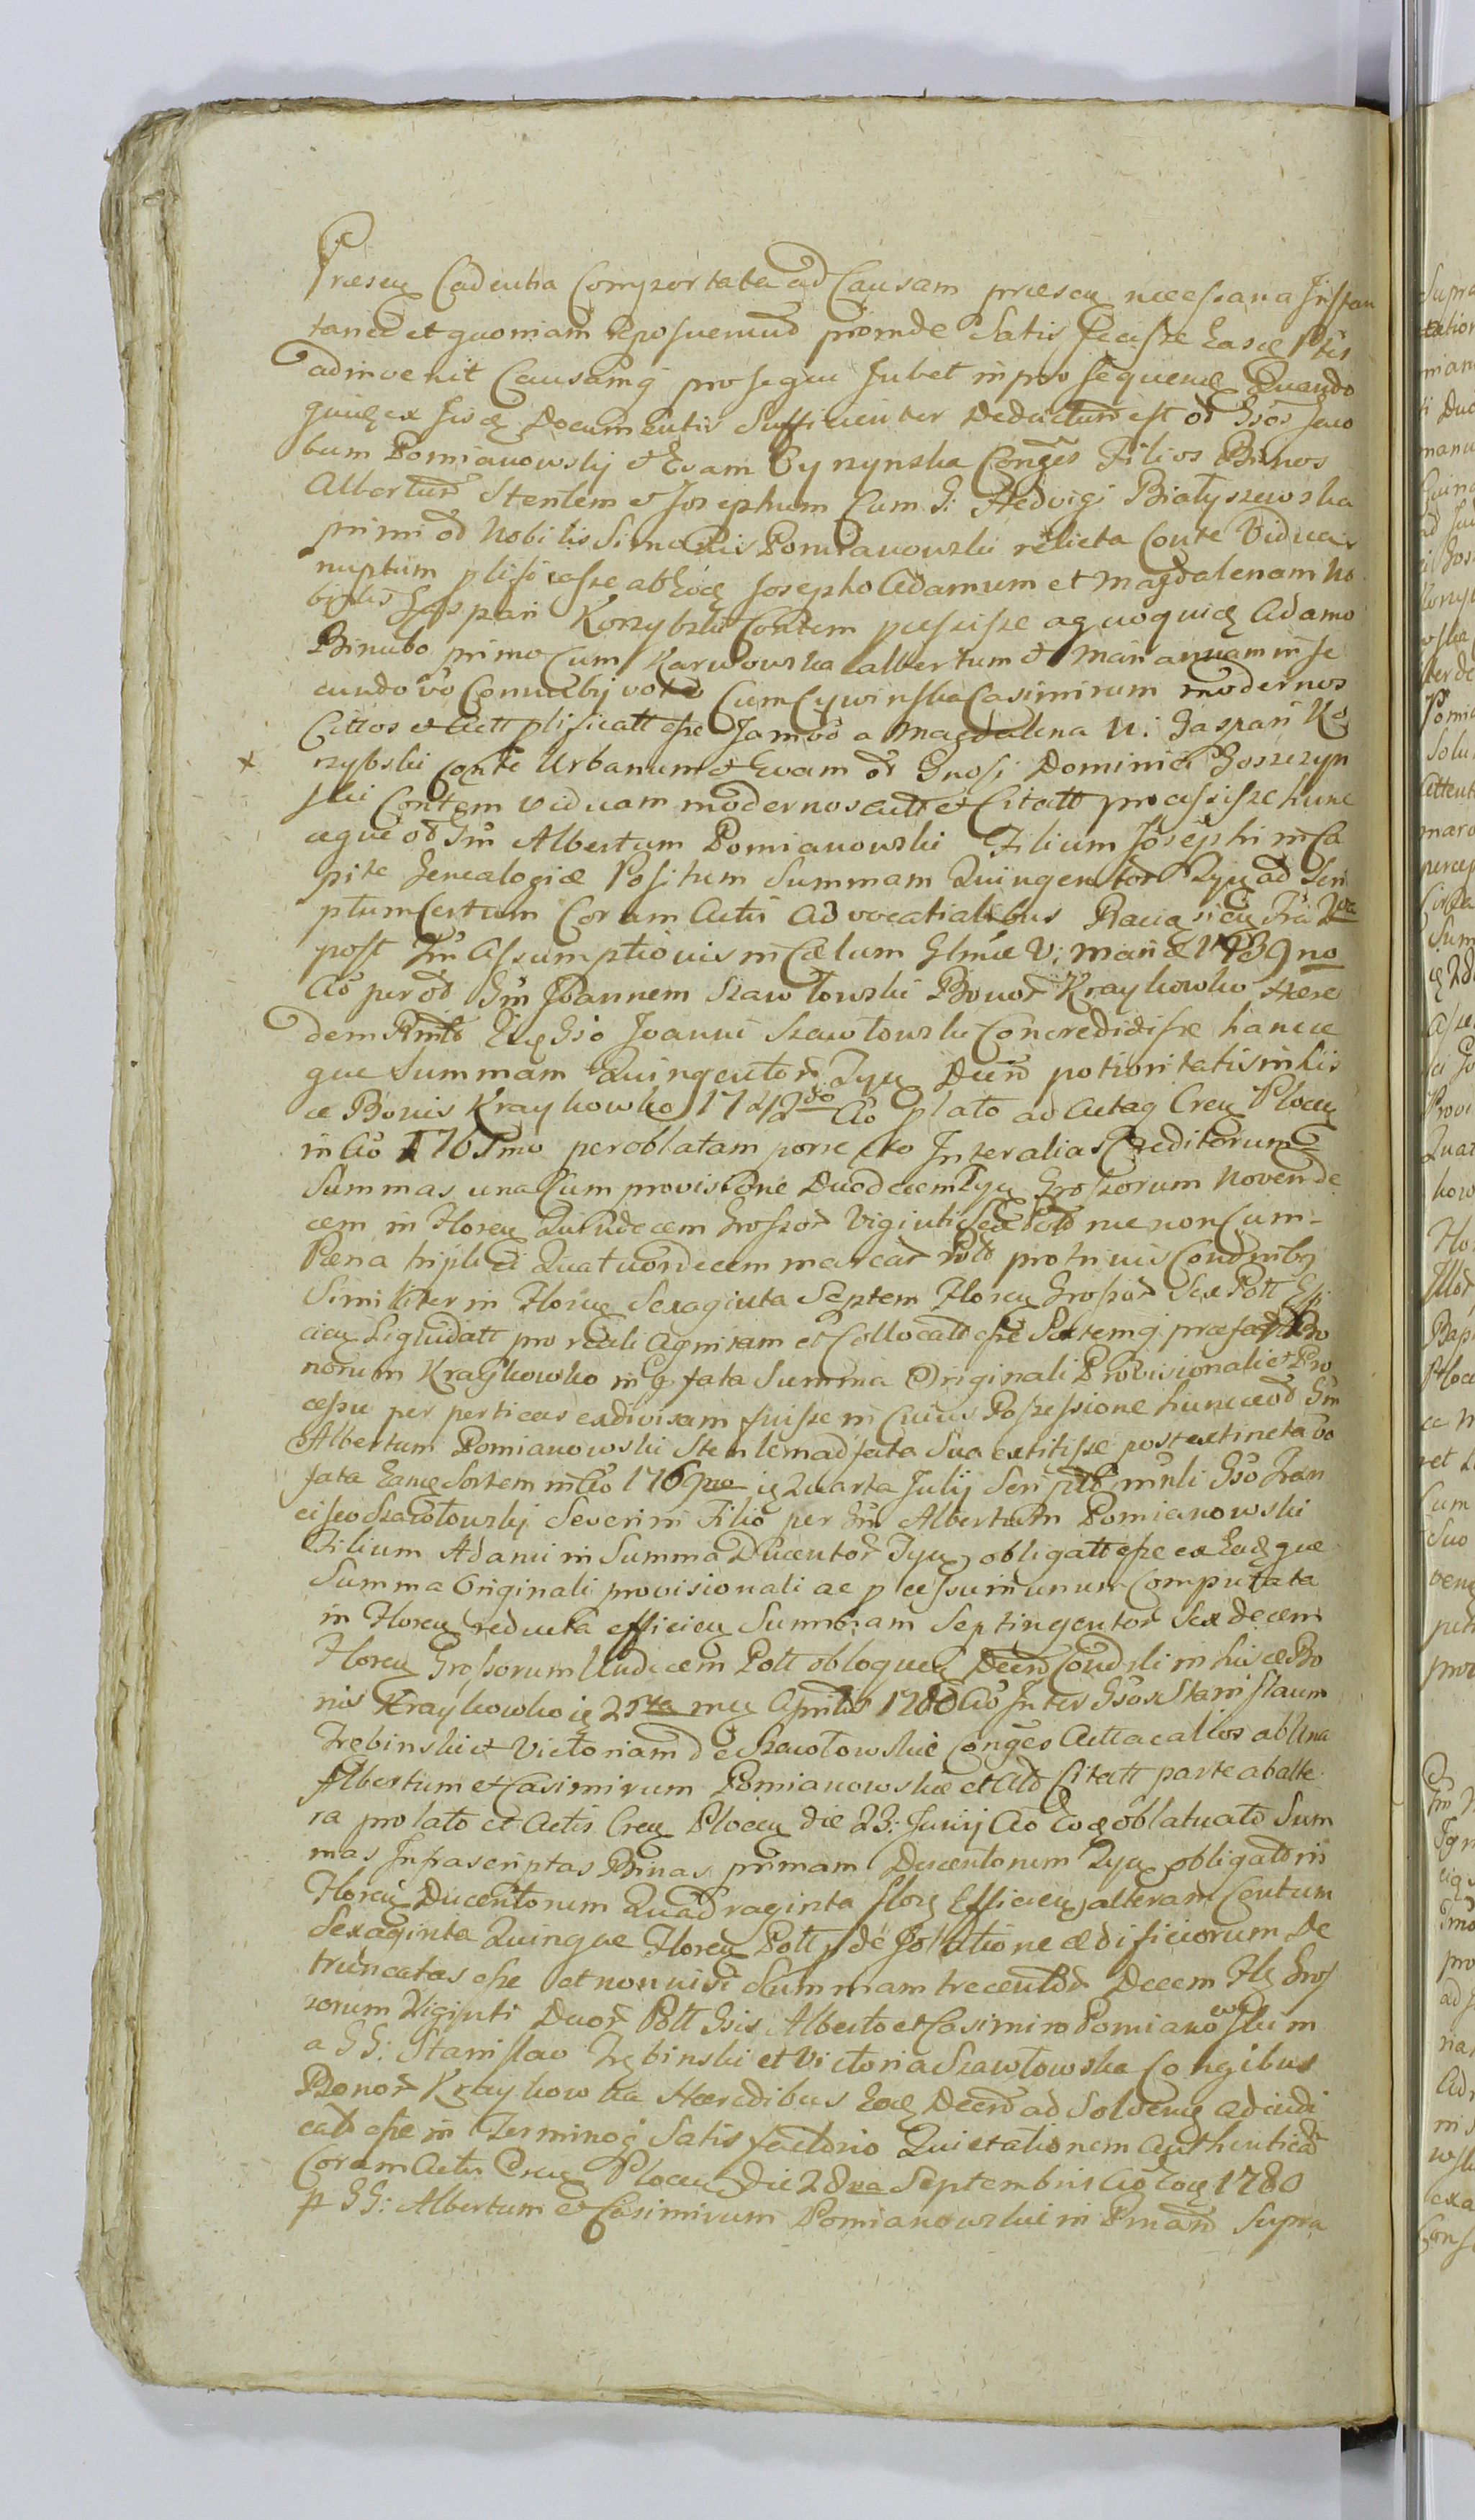 Præsen Cadentia Comportata ad Causam præsen necessaria Instan
tanee et quoniam reposuerund proinde Satis fecisse Easdē Ptes
adinvenit Causamq prosequi Jubet in prosequenē Quando
quidē ex Jisdē Documentis Sufficienter Deductum est od Gsos Jaco
bum Pomianowskj et Evam Cynzynska Conges Filios Binos
Albertum Sterilem et Josephum Cum G: Hedvigi Białyszewska
primi od Nobilis Simonis Pomianowski relicta Conte Vidua
nuptum plificasse ab Eodē Josepho Adamum et Magdalenam No
bilis Gaspari Korzybski Contem processisse aquoquidē Adamo
Binubo primo Cum Karwowska albertum et Mariannam in se
cundo vō Connubij voto Cum Cywinska Casimirum modernos
Cittos et Actt plificatt esse Jam vō a Magdalena N: Gaspari Ko
rzybski Conte Urbanum et Evam od Gnosi Dominici Goszczyn
ski Contem viduam modernos actt et Citatt processisse hunc
æque od Gm Albertum Pomianowski Filium Josephi in Ca
pite Genealogiæ Positum Summam Quingentor Tyn ad Scri
ptum Certum Coram Actis Advocatialibus Raciąz in Fia 2da
post Fm Assumptionis in Cælum Glmæ V: Mariæ 1739no
Aō per od Gm Joannem Szawłowski Bonor Kraykowko Hære
dem Gso Joanni Szawłowski Concredidisse hancce
que Summam Quingentor Tyn Decrō potioritatis in his
ce Bonis Kraykowko 1742do Aō plato ad Acta Cren Plocen
in Aō 1765mo per oblatam porrecto Inter alias Creditorum
Summas una Cum provisione Duodecem Tyn Grossorum Novende
cem in Floren Quindecem Grossor Viginti Sex Poło nec non Cum
Pœna triplici Quatuordecem marcar Poło pro trinis Condnibq
Similiter in Floren Sexaginta Septem Floren Grossor Sex Poll Effi
cien Liquidatt pro reali agnitam et Collocatō esse Sortemq præfator Bo
norum Kraykowko in præfata Summa Originali Provisionali et Pro
cessu per perticas exdivisam fuisse in Cuius Possessione huncce od Gm
Albertum Pomianowski Sterilem ad fata Sua extitisse post extincta vō
fata Eande Sortem in Aō 1769no ie Quarta Julij Scripto mnli Gso Fran
cisco Szawłowskj Severini Filio per Gm Albertum Pomianowski
Filium Adami in Summa Ducentor Tyn obligatt esse ex Eadē que
Summa Originali provisionali ac pcessu in unum Computata
in Floren reducta efficien Summam Septingentor Sex decem
Floren Grossorum Undecem Poll obloquen Decrō Condsli in hisce Bo
nis Kraykowko ie 25ta men Aprilis 1780 Aō Inter Gsos Stanislaum
Trębinski et Victoriam de Szawłowskie Conges Acta ac alios ab Una
Albertum et Casimirum Pomianowskie et Alō Citatt parte ab alte
ra prolato et Actis Cren Plocen die 23: Junij Aō Eodē oblatuato Sum
mas Infrascriptas Binas primam Ducentorum Tyn obligatorii
Floren Ducentorum Quadraginta flor Efficien alteram Centum
Sexaginta Quinque Floren Poll p de solatione ædificiorum De
truncatas esse et non nisi Summam trecentor Decem Fl Gros
sorum Viginti Duor Poll Gsis Alberto et Casimiro Pomianowskim
a GG: Stanislao Trębinski et Victoria Szawłowska Congibus
Bonor Kraykowka Hæredibus Eodē Decrō ad Solvenē adiudi
catō esse in Terminoq Satisfactorio Quietationem Authenticam
Coram Actis Cren Plocen Die 28va Septembris Aō Eodē 1780
p GG: Albertum et Casimirum Pomianowskie in Supra